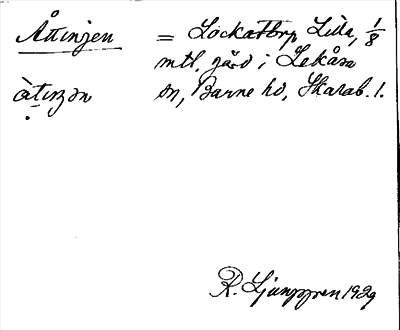 Åttinjen = Lockattorp Lilla, 1/8
mtl. gård i Lekåsa
àtiŋən sn, Barne hd, Skarab. l.
R. Ljunggren 1929